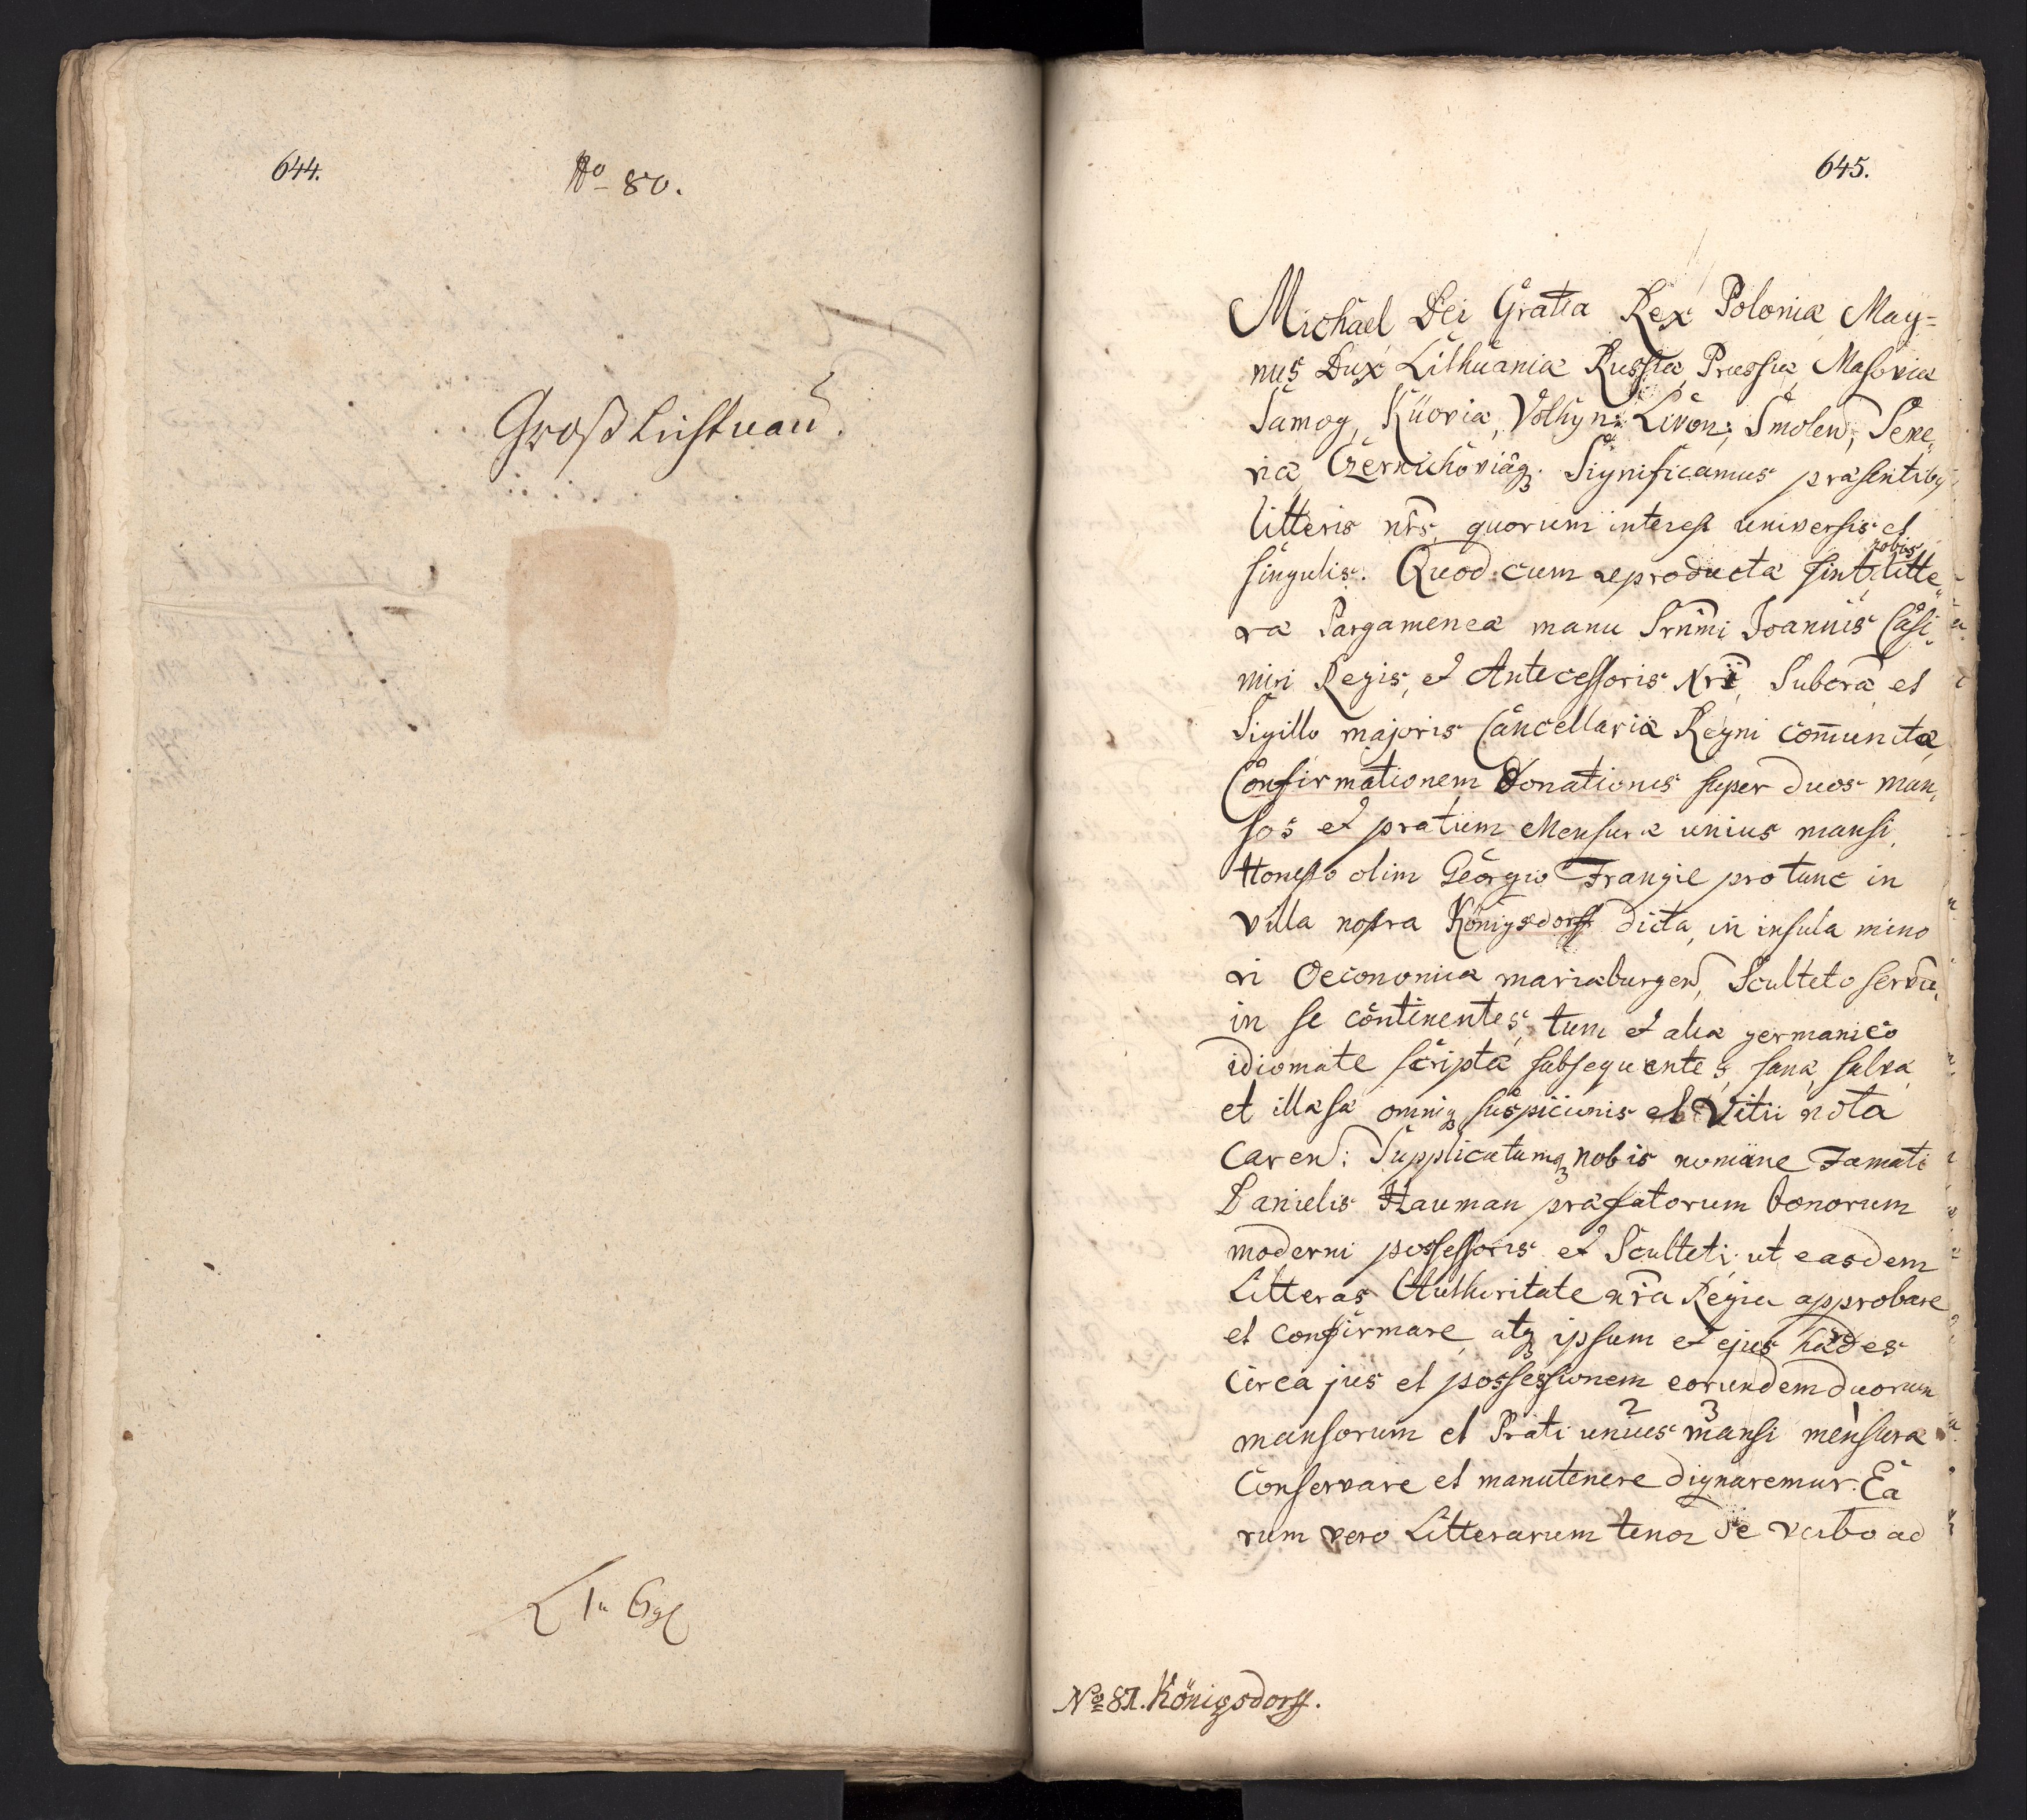 644.
No 80.
Groß Lichtnau.
645.
Michael Dei Gratia Rex Poloniæ Mag=
nus Dux Lithuaniæ Russiæ, Prussiæ, Masoviæ
Samog, Kijoviæ, Volhyn: Livon: Smolen, Seve„
riæ, Czernichoviæq3. Significamus præsentibus
litteris nrs, quorum interest universis et
singulis. Quod cum reproductæ sint nobis litte„
ræ Pargameneæ manu Srnmi Joannis Casi„
miri Regis, et Antecessoris Nri, Subscræ et
Sigillo majoris Cancellariæ Regni comunitæ
Confirmationem Donationis super duos man„
sos et pratum Mensuræ unius mansi,
Honesto olim Georgio Frangie pro tunc in
villa nostra Königsdorff dicta, in insula mino
ri Oeconomiæ mariæburgen, Sculteto servu,
in se continentes, tum et aliæ germanico
idiomate scriptæ subsequentes, sanæ, salvæ
et illæsæ omniq3 suspicionis et Vitii nota
Caren: Supplicatumq3 nobis nomine Famati
Danielis Hauman præfatorum bonorum
moderni possessoris et Sculteti, ut easdem
Litteras Authoritate nra Regia approbare
et confirmare, atq3 ipsum et ejus hærdes
circa jus et possessionem eorundem duorum
mansorum et Prati unius 2 mansi 3 mensuræ 1
Conservare et manutenere dignaremur. Ea
rum vero Litterarum tenor de verbo ad
No 81. Königsdorff.